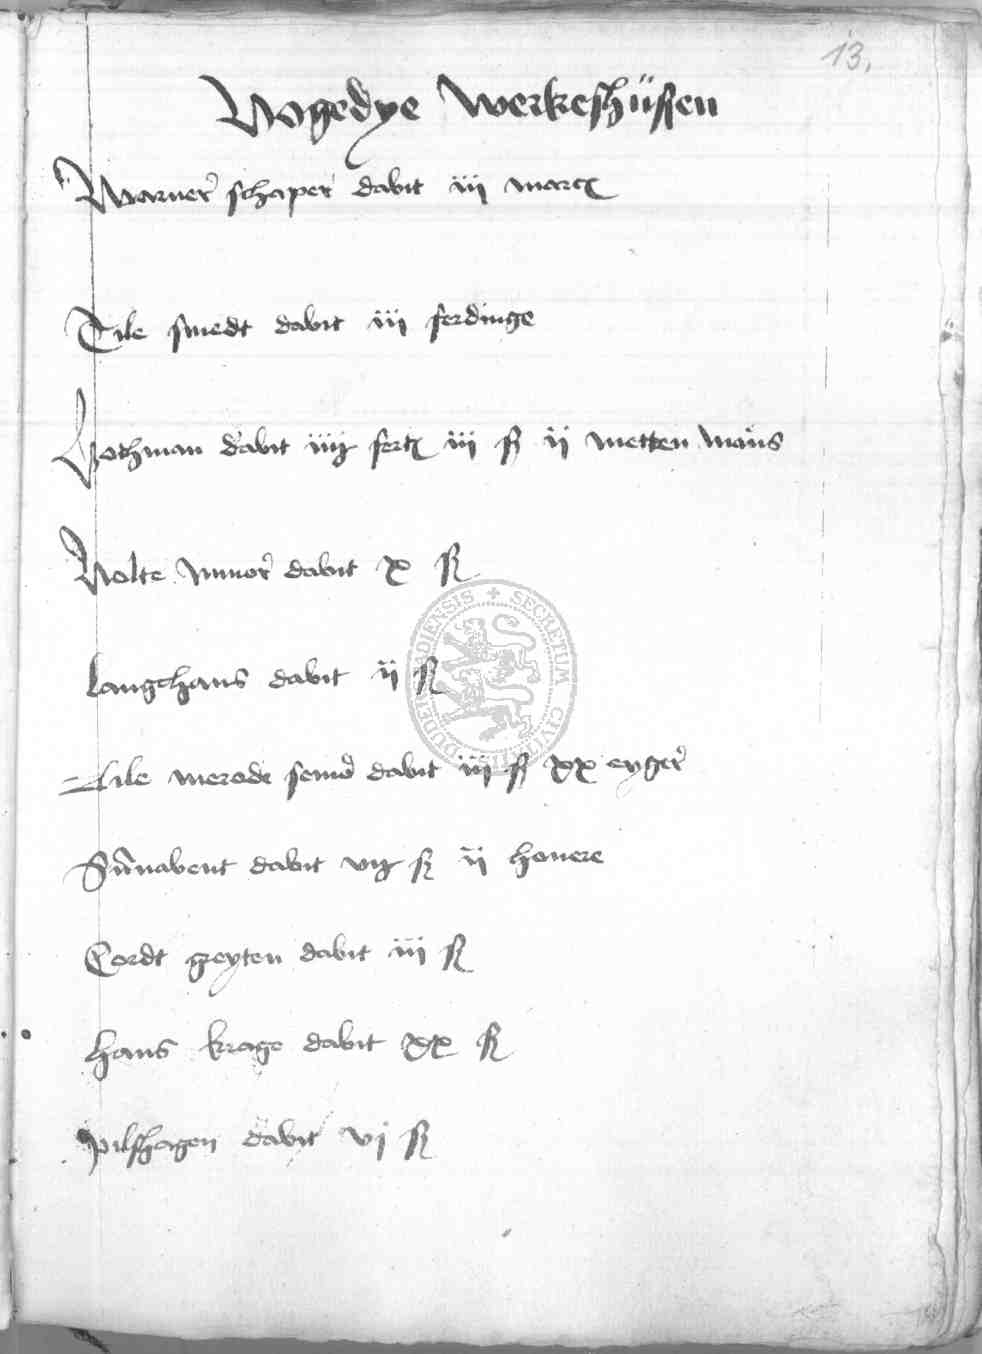 13.
Vogedye Werkeshüsen
Warner schaper dabit iij marc
Tile smedt dabit iij ferdinge
Bothman dabit iiij fert iij ß ij metten mans
Nolte dabit x ß
langehans dabit ij ß
Tile merode dabit iij ß xx eyger
Sunavent dabit ß ij honere
Cordt greyten dabit iij ß
hans krage dabit xx ß
pilshagen dabit vj ß
SECRETUM CIVITATIS DUDERSTADIENSIS